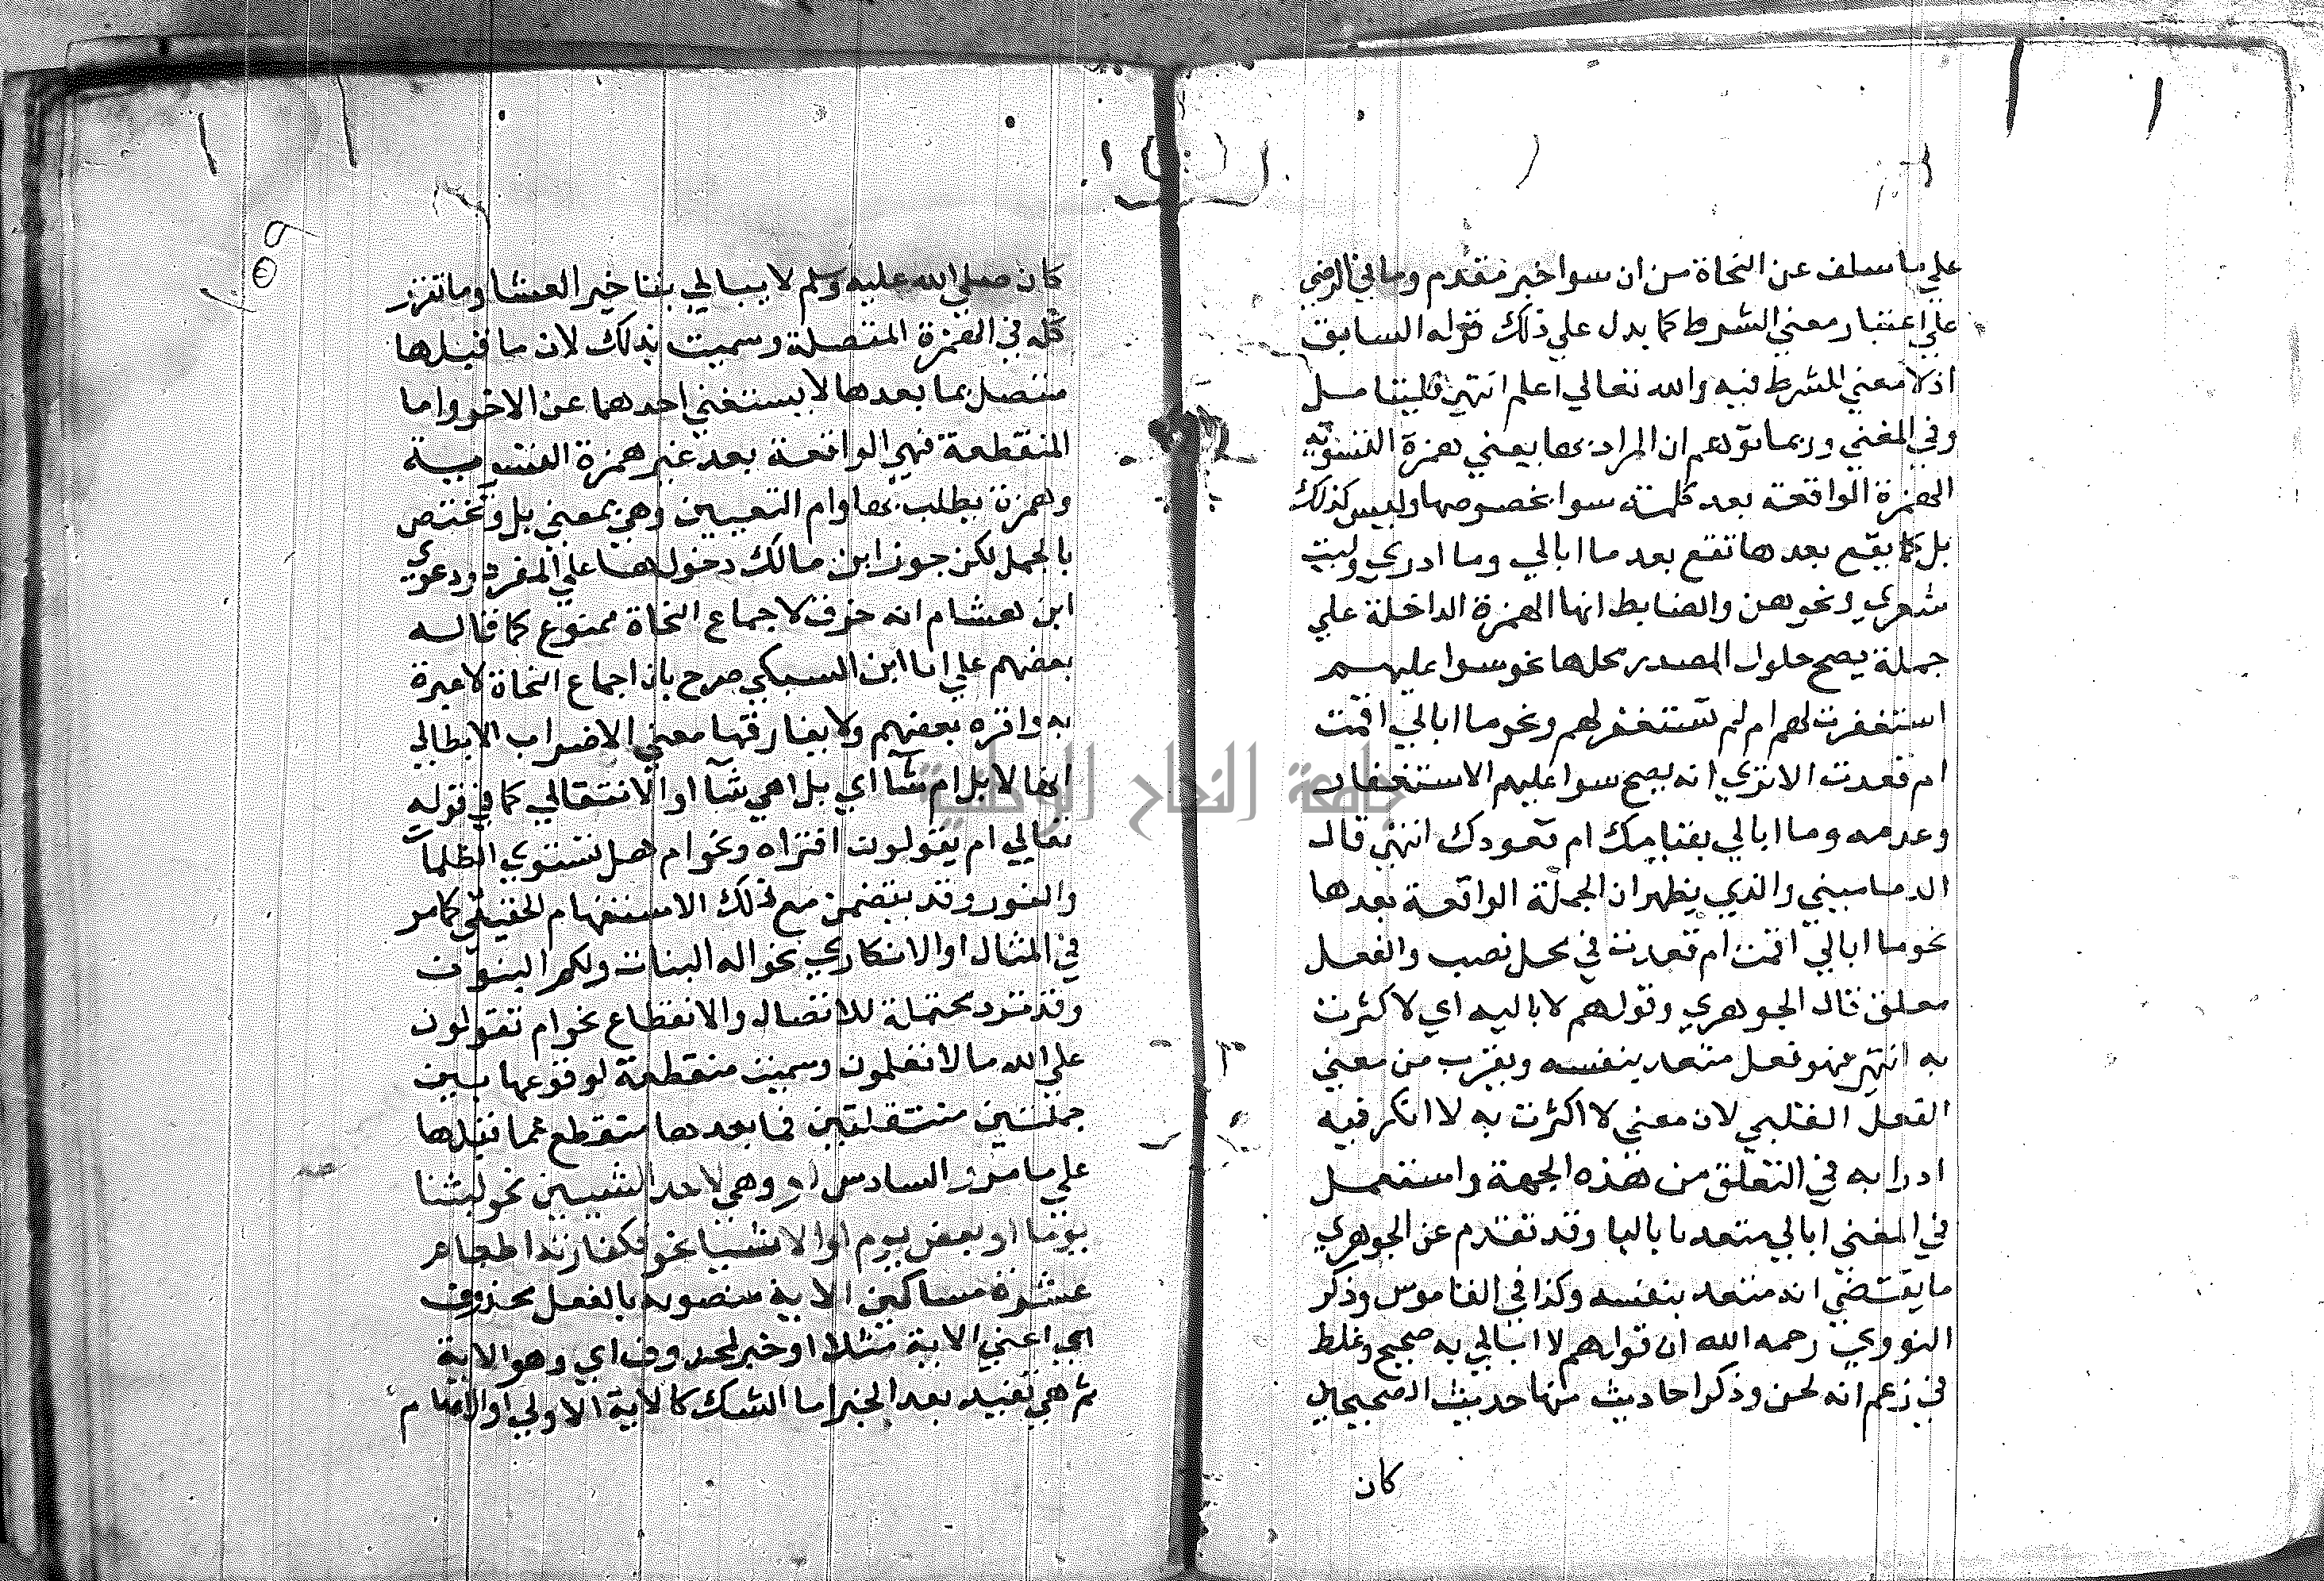 علي ما سلف عن النحاة من ان سوا خبر مقدم وما في الرضي
علي اعتبار معني الشرط كما يدل علي ذلك قوله السابق
اذ لا معني للشرط فيه والله تعالي اعلم انتهي فليتامل
وفي المغني وربما توهم ان المراد بها يعني همزة التسوية
الهمزة الواقعة بعد كلمة سوا بخصوصها وليس كذلك
بل كما يقع بعدها تقع بعد ما ابالي وما ادري وليت
شعري ونحوهن والضابط انها الهمزة الداخلة علي
جملة يصح حلول المصدر محلها نحو سوا عليهم
استغفرت لهم ام لم تستغفر لهم ونحو ما ابالي اقمت
ام قعدت الا تري انه يصح سوا عليهم الاستغفار
وعدمه وما ابالي بقيامك ام قعودك انتهي قال
الدماميني والذي يظهر ان الجملة الواقعة بعدها
نحو ما ابالي اقمت ام قعدت في محل نصب والفعل
معلق قال الجوهري وقولهم لا باليه اي لا اكثرت
به انتهي فهو فعل متعد بنفسه ويقرب من معني
الفعل القلبي لان معني لا اكثرت به لا افكر فيه
ادرا به في التعلق من هذه الجهة واستعمل
في المغني ابالي متعديا باليا وقد تقدم عن الجوهري
ما يقتضي انه متعد بنفسه وكذا في القاموس وذكر
النووي رحمه الله ان قولهم لا ابالي به صحيح وغلط
في زعم انه لحن وذكر احاديث منها حديث الصحيحين
كان
١٥٩
كان صلي الله عليه وسلم لا يبالي بتاخير العشا وما تقرر
كله في الهمزة المتصلة وسميت بذلك لان ما قبلها
متصل بما بعدها لا يستغني احدهما عن الاخر واما
المنقطعة فهي الواقعة بعد غير همزة التسوية
وهمزة يطلب بها وام التعيين وهي بمعني بل وتختص
بالجمل لكن جوز ابن مالك دخولها علي المفرد ودعوي
ابن هشام انه خرق لاجماع النحاة ممنوع كما قاله
بعضهم علي اما ابن السبكي صرح بان اجماع النحاة لا عبرة
به واقره بعضهم ولا يفارقها معني الاضراب الابطالي
انها لا بل ام شآ اي بل اهي شآ او الانتقالي كما في قوله
تعالي ام يقولون افتراه ونحو ام هل تستوي الظلمات
والنور وقد يتضمن مع ذلك الاستفهام الحقيقي كما مر
في المثال او الانكاري نحو اله البنات ولكم البنون
وقد ترد محتملة للاتصال والانقطاع نحو ام تقولون
علي الله ما لا تعلمون وسميت منقطعة لوقوعها بين
جملتين مستقلتين فما بعدها منقطع عما قبلها
علي ما مرر السادس او وهي لاحد الشيين نحو لبثنا
يوما او بعض يوم او الاشيا نحو فكفارته اطعام
عشرة مساكين الاية منصوبه بالفعل محذوف
اي اعني الاية مثلا او خبر لمحذوف اي وهو الاية
ثم هي تفيد بعد الخبر اما الشك كالاية الاولي او الابهام
جامعة النجاح الوطنية